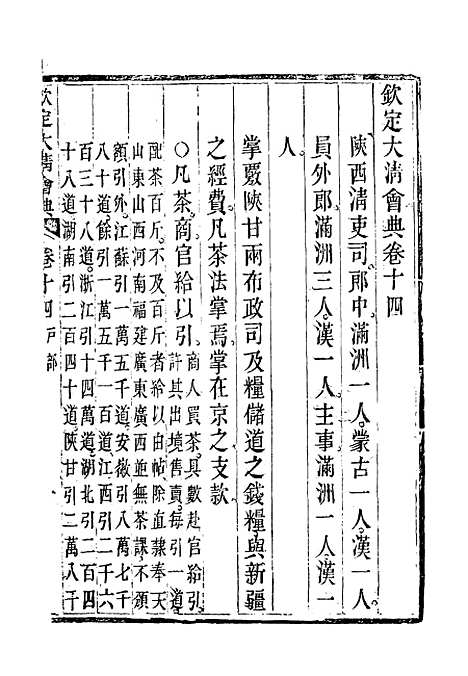 欽定大清會典卷十四
陝西清吏司郎中滿洲一人蒙古一人漢一人
員外郎滿洲三人漢一人主事滿洲一人漢一
人
掌覈陝甘兩布政司及糧儲道之錢糧與新疆
之經費凡茶法掌焉掌在京之支款
○凡茶商官給以引商人買茶具數赴官給引
許其出境售賣每引一道
配茶百斤不及百斤者給以由帖除直隸奉天
山東山西河南福建廣東廣西並無茶課不頒
額引外江蘇引一萬五千道安徽引八萬七千
八十道餘引一萬五千一百道江西引二千六
百三十八道浙江引十四萬道湖北引二百四
十八道湖南引二百四十道陝甘引二萬八千
欽定大清會典
卷十四 戶部